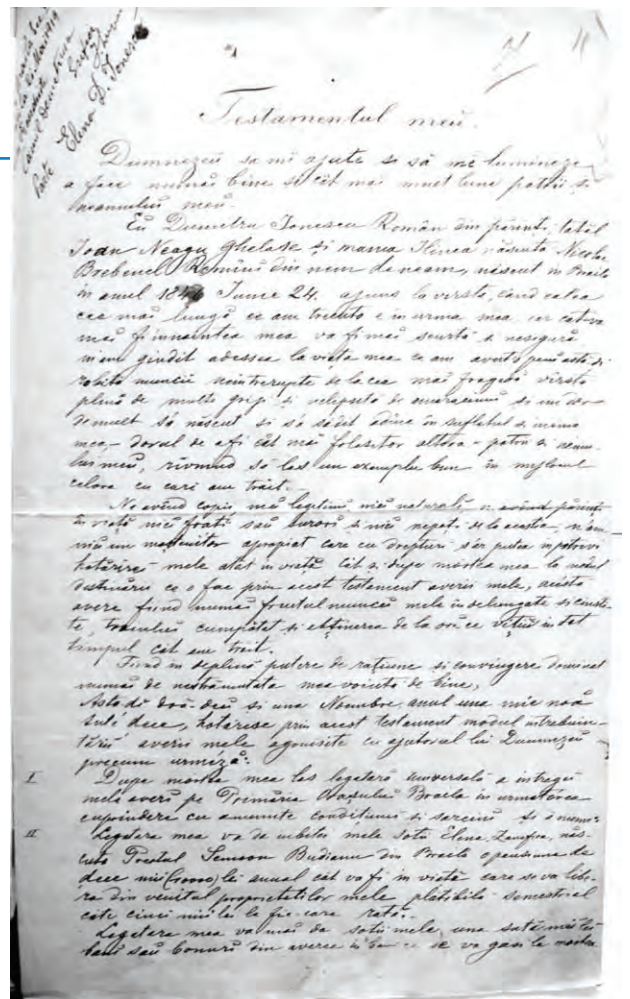 Elena D. Ionescu
Testamentul meu.
Dumnezeu sa mĭ ajute si să mĕ lumineze
a face numai bine si cât mai mult bine patrii si
neamului meŭ.
Eŭ Dumitru Ionescu Român din părinți, tatăl
Ioan Neagu Ghelase și mama Ilinca născuta Nicolae
Brebenel Români din nem de neam, născut in Braila
in anul Iunie 24. ajuns la vîrsta, cand calea
cee mai lungă ce am trecuto e in urma mea iar câtva
mai fi innaintea mea va fi mai scurtă si nesigură
m'am gîndit adessea la viața mea ce am avuto penĕ astă-dĭ
robită muncii neintrerupte de la cea mai fragedă vîrstă
plină de multe grijĭ si velipsuta de amaraciuni si
demult să născut si să sădit adinc in sufletul si inima
mea – dorul de a fi cât mai folositor altora – patrii si neamu-
lui meŭ, rivnind să las un exemplu bun in mijlocul
celora cu cari am trăit.
Ne avĕnd copii nicĭ legitimi nicĭ naturali, n'avĕnd părinți
in viață nicĭ frați sau surori si nicĭ nepoți de la acestia, n'am
nicĭ un moștenitor apropiat care cu drepturi s'ar putea inpotrivi
hotărire mele atet in viață cât si dupe moartea mea la modul
destinării ce o fac prin acest testament averii mele, acesta
avere fiind numai fructul muncii mele indelungate si cinsti-
te, traiului cumpătat si abținerea de la orĭ ce vițiŭ in tot
timpul cât am trăit.
Fiind in deplină putere de rațiune si convingere dominat
numai de nestrămutata mea voință de bine,
Astă-dĭ doă-decĭ si una Noembre, anul una mie noă
sute dece, hotărisc prin acest testament modul intrebuin-
țării averii mele agonisite cu ajutorul lui Dumnezeŭ
precum urmeză:
I Dupe moartea mea las legatară universală a intregii
mele averi pe Primăria Orașului Braila in urmatórea
cuprindere cu amunte condițiuni si sarcini si anume:
II Legatara mea va da iubitei mele soții Elena, Zamfira, năs-
cută Preotul Simion Budianu din Braila o pensiune de
dece mii (10000) lei anual cât va fi in viață care se va libe-
ra din venitul proprietatilor mele platibila semestrial
câte cinci mii lei la fie-care rată.
Legatara mea va mai da soții mele una sută mii lei
bani sau bonuri din averea in ce se va gasi la moartea